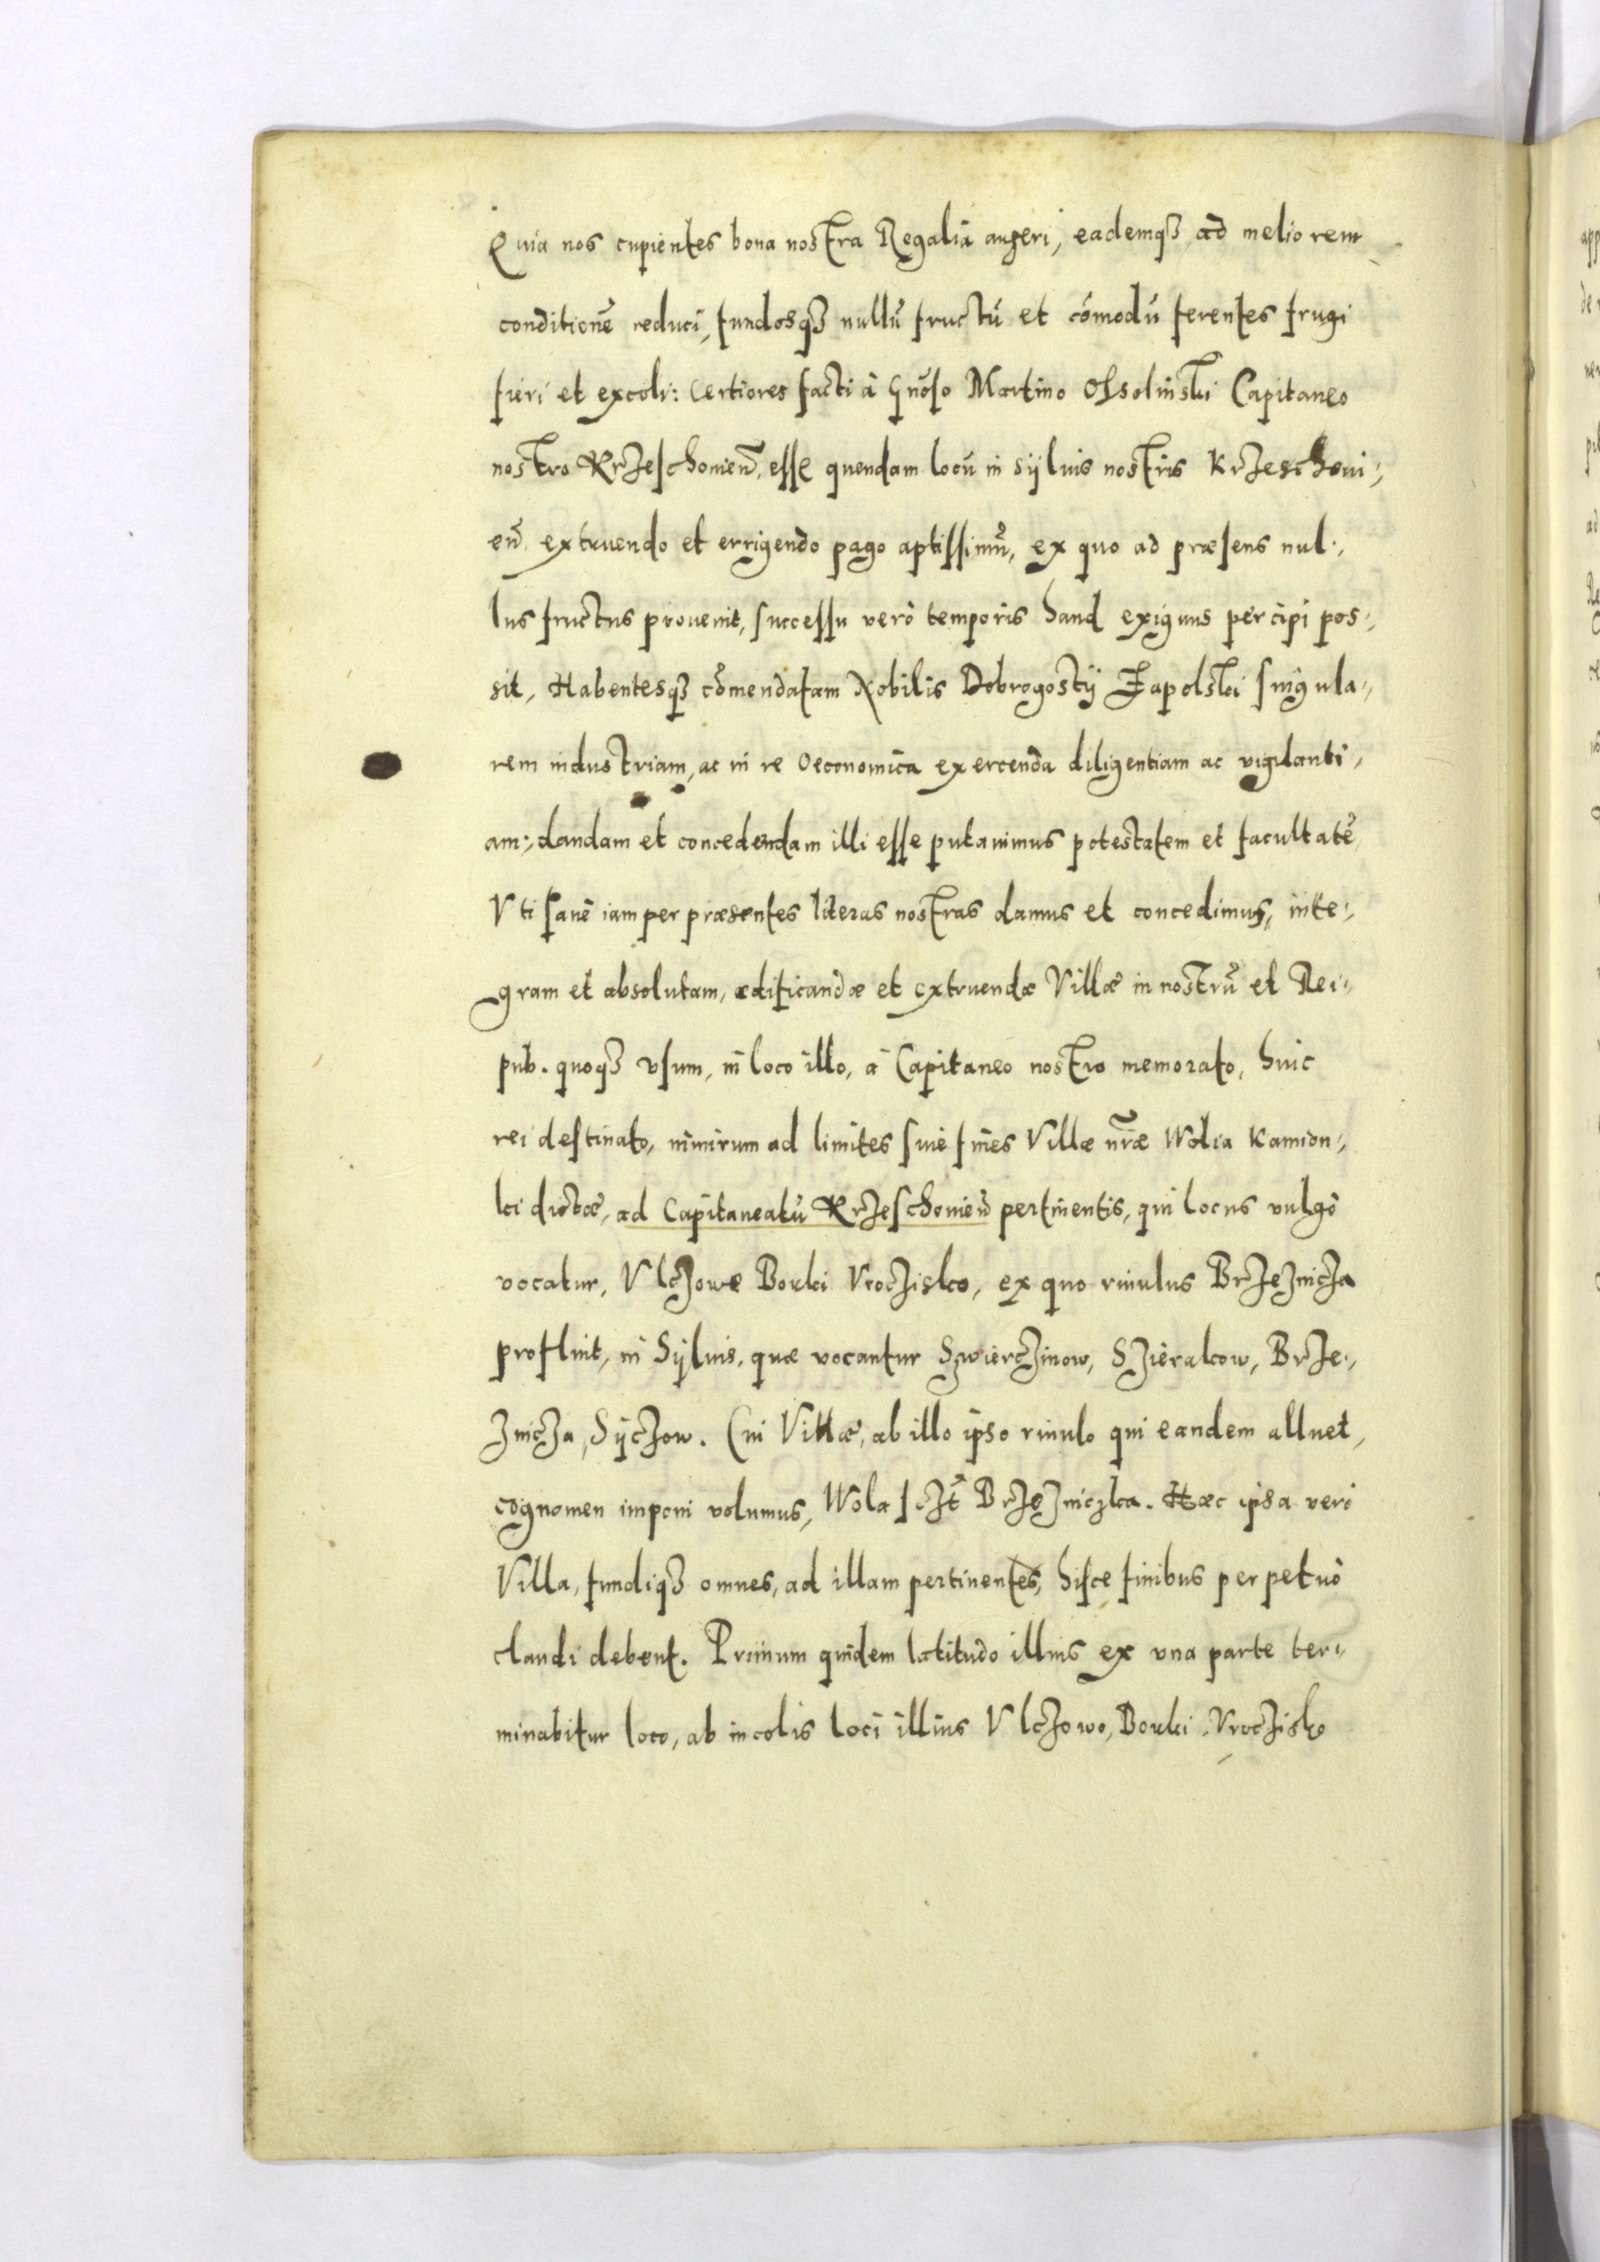 Quia nos cupientes bona nostra Regalia augeri, eademqȝ ad meliorem
conditionē reduci, fundosqȝ nullū fructū et cōmodū ferentes frugi
fieri et excoli: Certiores facti à Gnōso Martino Ossolinski Capitaneo
nostro Krzeschouien̄. esse quendam locū in syluis nostris Krzeschoui-,
en̄. extruendo et errigendo pago aptissimū, ex quo ad præsens nul-,
lus fructus prouenit, successu verò temporis haud exiguus percipi pos-,
sit, Habentesqȝ cōmendatam Nobilis Dobrogostij Zapolski singula-,
rem industriam, ac in re Oeconomica exercenda diligentiam ac vigilanti-,
am:, dandam et concedendam illi esse putauimus potestatem et facultatē
Vti sanè iam per præsentes literas nostras damus et concedimus, inte-,
gram et absolutam, ædificandæ et extruendæ Villæ in nostrū et Rei-,
pub. quoqȝ vsum, in loco illo, à Capitaneo nostro memorato, huic
rei destinato, nimirum ad limites siue fines Villæ nr̄æ Wolia Kamion-,
ki dictæ, ad Capitaneatū Krzeschouien̄ pertinentis, qui locus vulgò
vocatur, Vlczowe Borki Vroczisko, ex quo riuulus Brzeznicza
profluit, in Syluis, quæ vocantur Szwierczinow, Szieralcow, Brze-,
znicza, Syczow. Cui Villæ, ab illo ipso riuulo qui eandem alluet,
cognomen imponi volumus, Wola sczt̄ Brzezniczka. Hæc ipsa verò
Villa, fundiqȝ omnes, ad illam pertinentes, hisce finibus perpetuò
claudi debent. Primum quidem latitudo illius ex vna parte ter-,
minabitur loco, ab incolis loci illius Vlczowo, Borki, Vroczisko